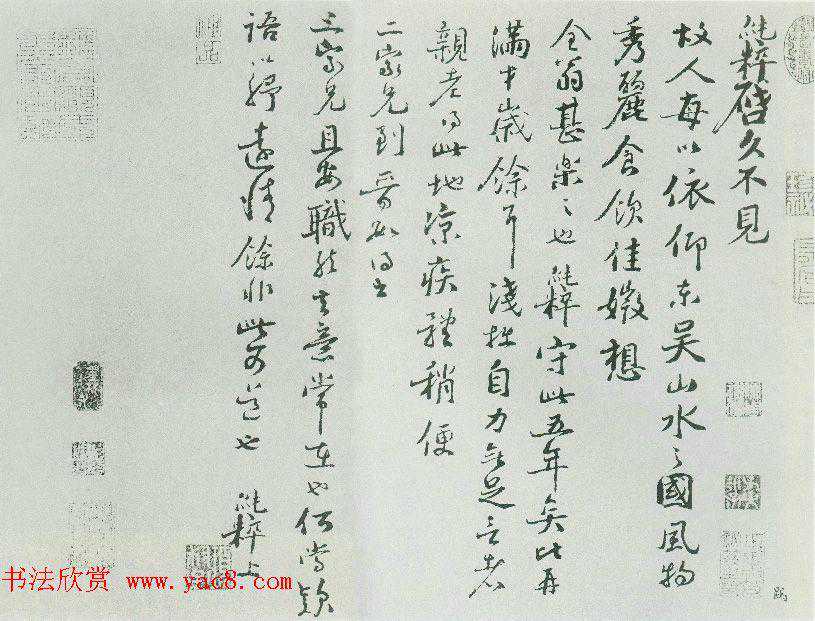 純粹啓久不見
故人每以依仰東吳山水之國風物
秀麗食飲佳媺想
全翁甚樂之也純粹守此五年矣比再
滿半歲餘耳淺拙自力無足言者
親老得此地涼疾體稍便
二家兄到晉必得書
三家兄且安職然其意常在也何當款
語以紓遠情餘非此可道也純粹上
书法欣赏 www.yac8.com